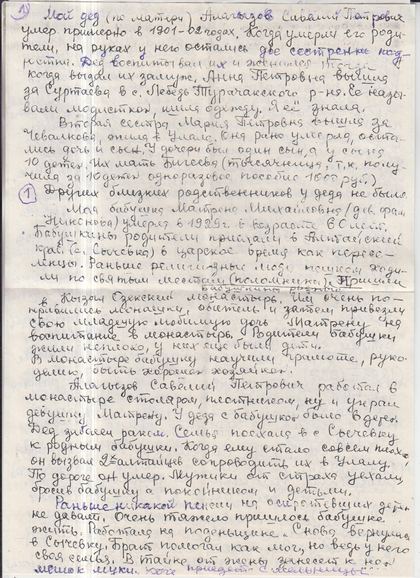 1) Мой дед (по матери) Алагызов Савелий Петрович
умер примерно в 1901-02 годах. Когда умерли его роди-
тели, на руках у него остались две сестренки
Дед воспитывал их и
когда выдал их замуж. Анна Петровна вышла
за Суртаева в с. Лебедь Турачакского р-на. Ее назы-
вали модисткой, шила одежду. Я её знала.
Вторая сестра Мария Петровна вышла за
Чевалкова, жила в Улале. Она рано умерла, оста-
лись дочь и сын. У дочери был один сын, а у сына
10 детей. Их мать (тысячница, т.к. полу-
чила за 10 детей одноразовое пособие руб.)
1) Других близких родственников у деда не было
Моя бабушка Матрена Михайловна (дев. фам.
Никонова) умерла в 1929г. в возрасте 60 лет.
Бабушкины родители приехали в Алтайский
край (с. Сычевка) в царское время как пересе-
ленцы. Раньше религиозные люди пешком ходи-
ли по святым местам (паломники). Пришли
бабушкины родители
в монастырь. Им очень по-
нравились монашки, обитель и затем привезли
свою младшую любимую дочь Матрену на
воспитание в монастырь. Родители бабушки
жили неплохо, у них ещё были дети.
В монастыре бабушку научили грамоте, руко-
делию, быть хорошей хозяйкой.
Алагызов Савелий Петрович работал в
монастыре столяром, плотником, ну и украл
девушку Матрену. У деда с бабушкой было
Дед заболел раком. Семья поехала в с. Сычевку
к родным бабушки. Когда ему стало совсем плохо,
он вызвал 2х алтайцев сопроводить их в Улалу.
По дороге он умер. Мужики от страха уехали,
бросив бабушку с покойником и детьми.
Раньше никакой пенсии на осиротевших детей
не давали. Очень тяжело пришлось бабушке
жить. Работала на поденщине. Снова вернулись
в Сычевку. Брат помогал как мог, но ведь у него
своя семья. В тайне от жены занесет к нам
мешок муки.